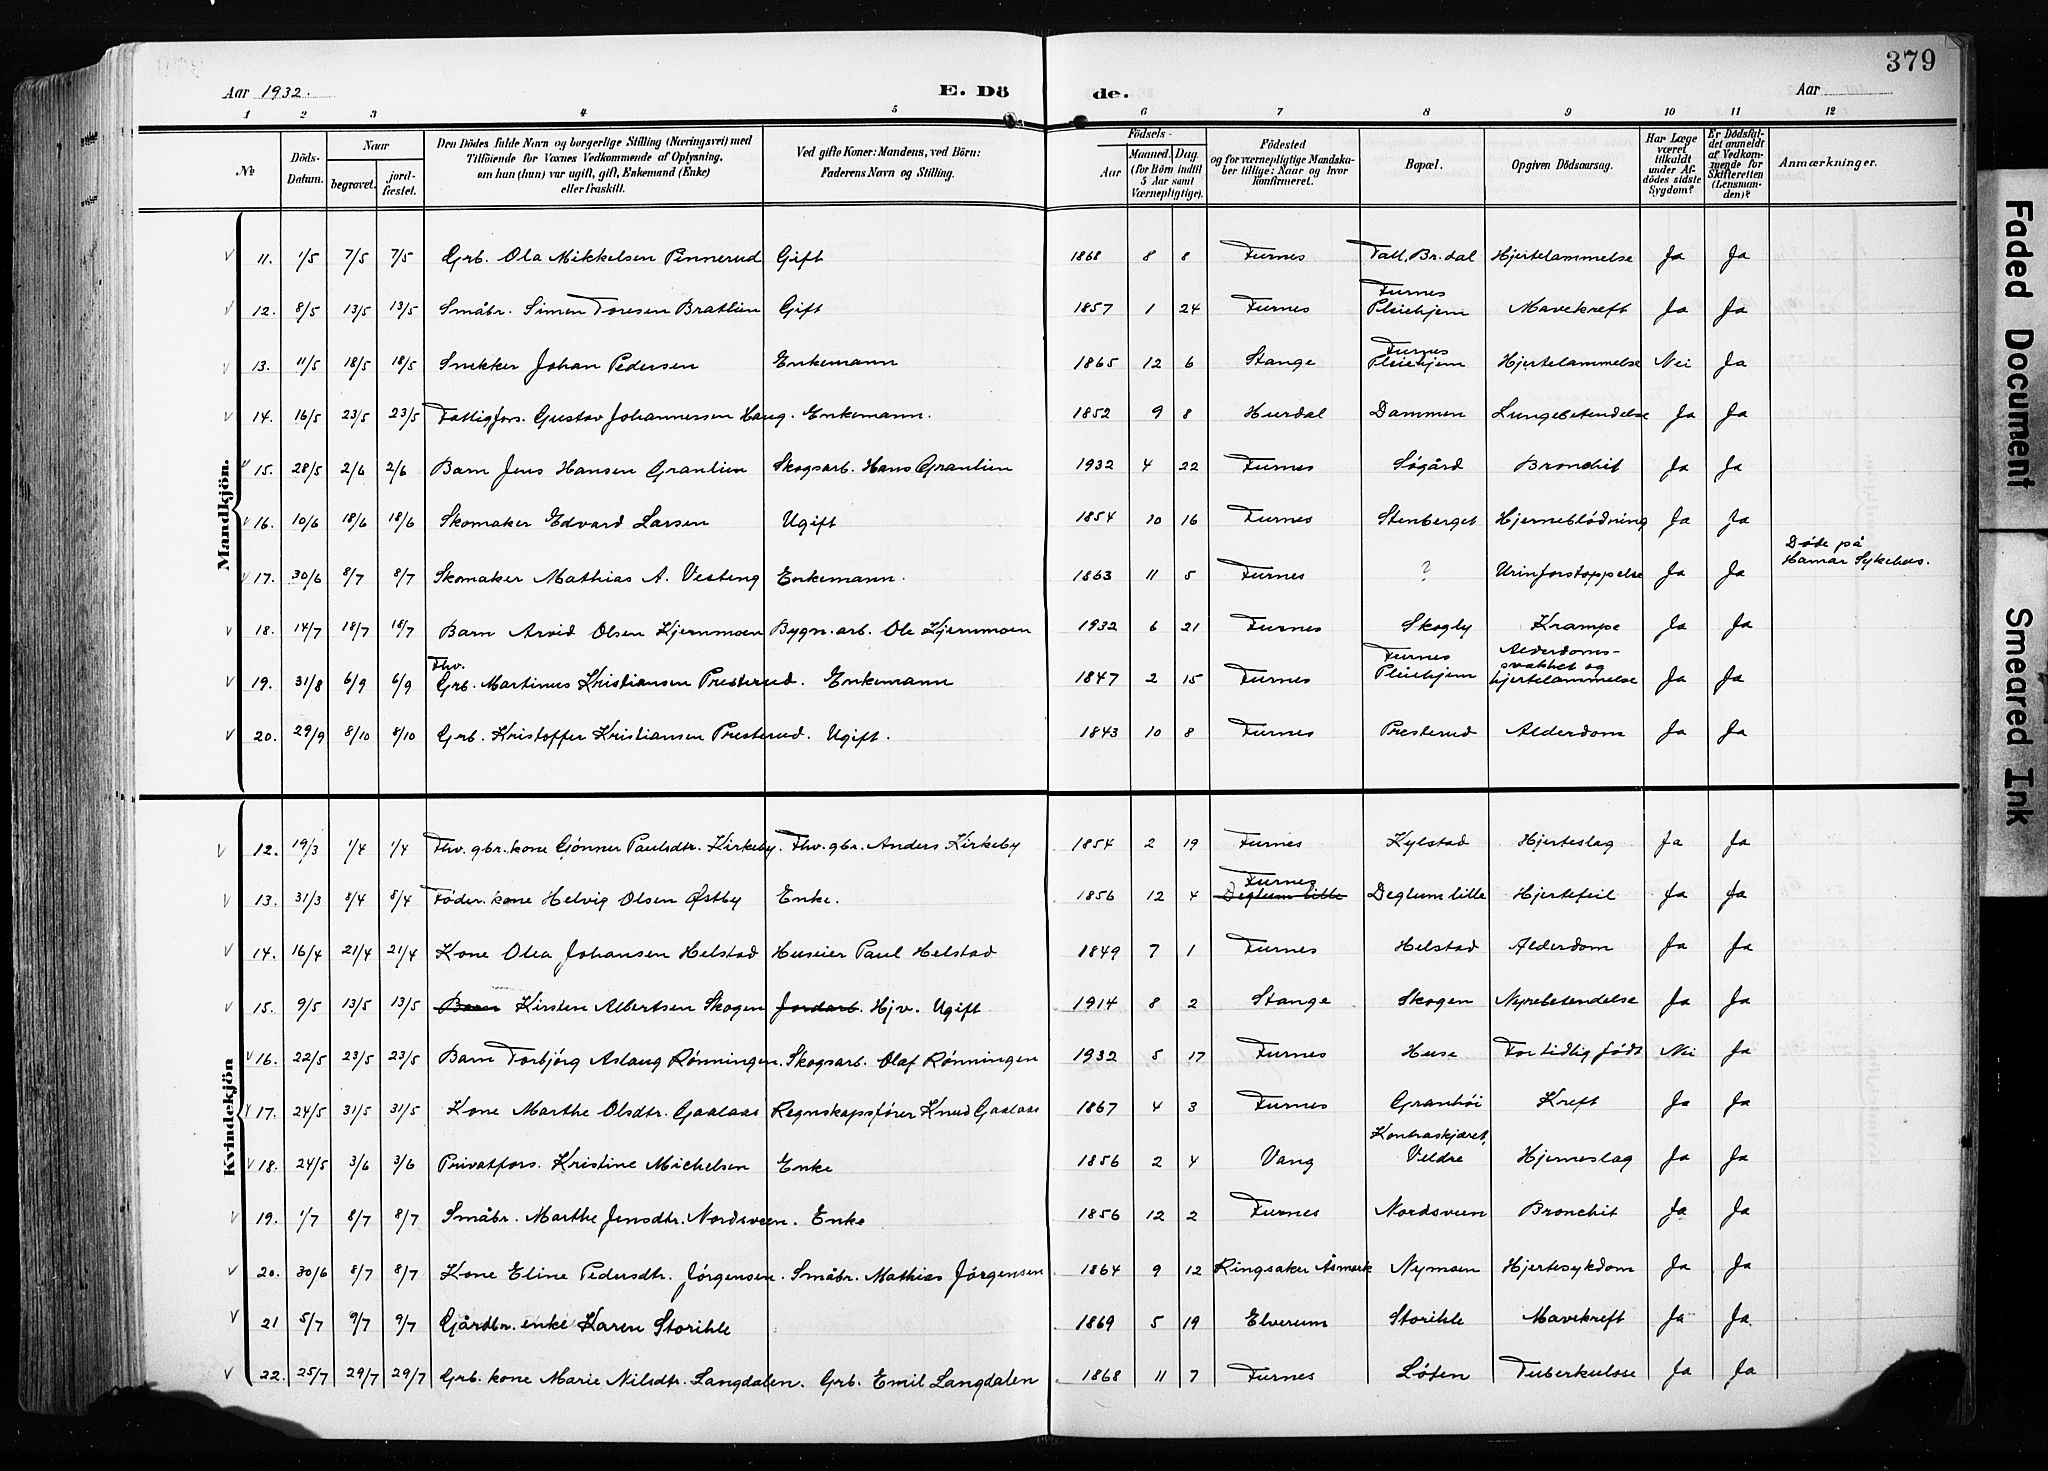 379
Aar 1932.
E. Dö de.
Aar
1 2 3 4 5 6 7 8 9 10 11 12
№
Döds-Datum.
Naar begravet. jordfæstet.
Den Dödes fulde Navn og borgerlige Stilling (Næringsvei) med Tilföiende for Voxnes Vedkommende af Oplysning, om han (hun) var ugift, gift, Enkemand (Enke) eller fraskilt.
Ved gifte Koner: Mandens, ved Börn: Faderens Navn og Stilling.
Födsels- Aar Maaned. Dag. (for Börn indtil 5 Aar samt Værnepligtige).
Födested og for værnepligtige Mandskaber tillige: Naar og hvor konfirmeret.
Bopæl.
Opgiven Dödsaarsag.
Har Læge været tilkaldt under Afdödes sidste Sygdom?
Er Dödsfaldet anmeldt af Vedkommende for Skifteretten (Lensmanden)?
Anmærkninger.
Mandkjön.
V 11. 1/5 7/5 7/5 Grb. Ola Mikkelsen Pinnerud Gift 1868 8 8 Furnes Fall, Br.dal Hjertelammelse Ja Ja
V 12. 8/5 13/5 13/5 Småbr. Simen Toresen Bratlien Gift 1857 1 24 Furnes Furnes Pleiehjem Mavekreft Ja Ja
V 13. 11/5 18/5 18/5 Snekker Johan Pedersen Enkemann 1865 12 6 Stange Furnes Pleiehjem Hjertelammelse Nei Ja
V 14. 16/5 23/5 23/5 Fattigfors. Gustav Johannessen Haug. Enkemann. 1852 9 8 Hurdal Dammen Lungebetendelse Ja Ja
V 15. 28/5 2/6 2/6 Barn Jens Hansen Granlien Skogsarb. Hans Granlien 1932 4 22 Furnes Søgård Bronchit Ja Ja
V 16. 10/6 18/6 18/6 Skomaker Edvard Larsen Ugift 1854 10 16 Furnes Stenberget Hjerneblödning Ja Ja
V 17. 30/6 8/7 8/7 Skomaker Mathias A. Vesteng Enkemann. 1863 11 5 Furnes ? Urinforstoppelse Ja Ja Døde på Hamar Sykehus.
V 18. 14/7 18/7 18/7 Barn Arvid Olsen Kjernmoen Bygn.arb. Ole Kjernmoen 1932 6 21 Furnes Skogly Krampe Ja Ja
V 19. 31/8 6/9 6/9 Fhv. Grb. Martinus Kristiansen Presterud. Enkemann 1847 2 15 Furnes Furnes Pleiehjem Alderdoms-svakhet og hjertelammelse Ja Ja
V 20. 29/9 8/10 8/10 Grb. Kristoffer Kristiansen Presterud. Ugift. 1843 10 8 Furnes Presterud Alderdom Ja Ja
Kvindekjön
V 12. 19/3 1/4 1/4 Fhv. gbr. kone Gjønner Paulsdtr. Kirkeby. Fhv. gbr. Anders Kirkeby 1854 2 19 Furnes Kylstad Hjerteslag Ja Ja
V 13. 31/3 8/4 8/4 Føder. kone Helvig Olsen Østby Enke. 1856 12 4 Furnes Deglum lille Deglum lille Hjertefeil Ja Ja
V 14. 16/4 21/4 21/4 Kone Olea Johansen Helstad Huseier Paul Helstad 1849 7 1 Furnes Helstad Alderdom Ja Ja
V 15. 9/5 13/5 13/5 Barn Kirsten Albertsen Skogen Jordarb. Hjv. Ugift 1914 8 2 Stange Skogen Nyrebetendelse Ja Ja
V 16. 22/5 23/5 23/5 Barn Torbjörg Aslaug Rönningen. Skogsarb. Olaf Rönningen 1932 5 17 Furnes Huse For tidlig født Nei Ja
V 17. 24/5 31/5 31/5 Kone Marthe Olsdtr. Gaalaas Regnskapsfører Knud Gaalaas 1867 4 3 Furnes Granhöi Kreft Ja Ja
V 18. 24/5 3/6 3/6 Privatfors. Kristine Michelsen Enke 1856 2 4 Vang Kontraskjæret, Veldre Hjerneslag Ja Ja
V 19. 1/7 8/7 8/7 Småbr. Marthe Jensdtr. Nordsveen. Enke 1856 12 2 Furnes Nordsveen Bronchit Ja Ja
V 20. 30/6 8/7 8/7 Kone Eline Pedersdtr. Jörgensen. Småbr. Mathias Jörgensen 1864 9 12 Ringsaker Åsmark Nymoen Hjertesykdom Ja Ja
V 21 5/7 9/7 9/7 Gjårdbr. enke Karen Storihle 1869 5 19 Elverum Storihle Mavekreft Ja Ja.
V 22. 25/7 29/7 29/7 Grb. kone Marie Nilsdtr. Langdalen. Grb. Emil Langdalen 1868 11 7 Furnes Løten Tuberkulose Ja Ja
Faded Document
Smeared Ink